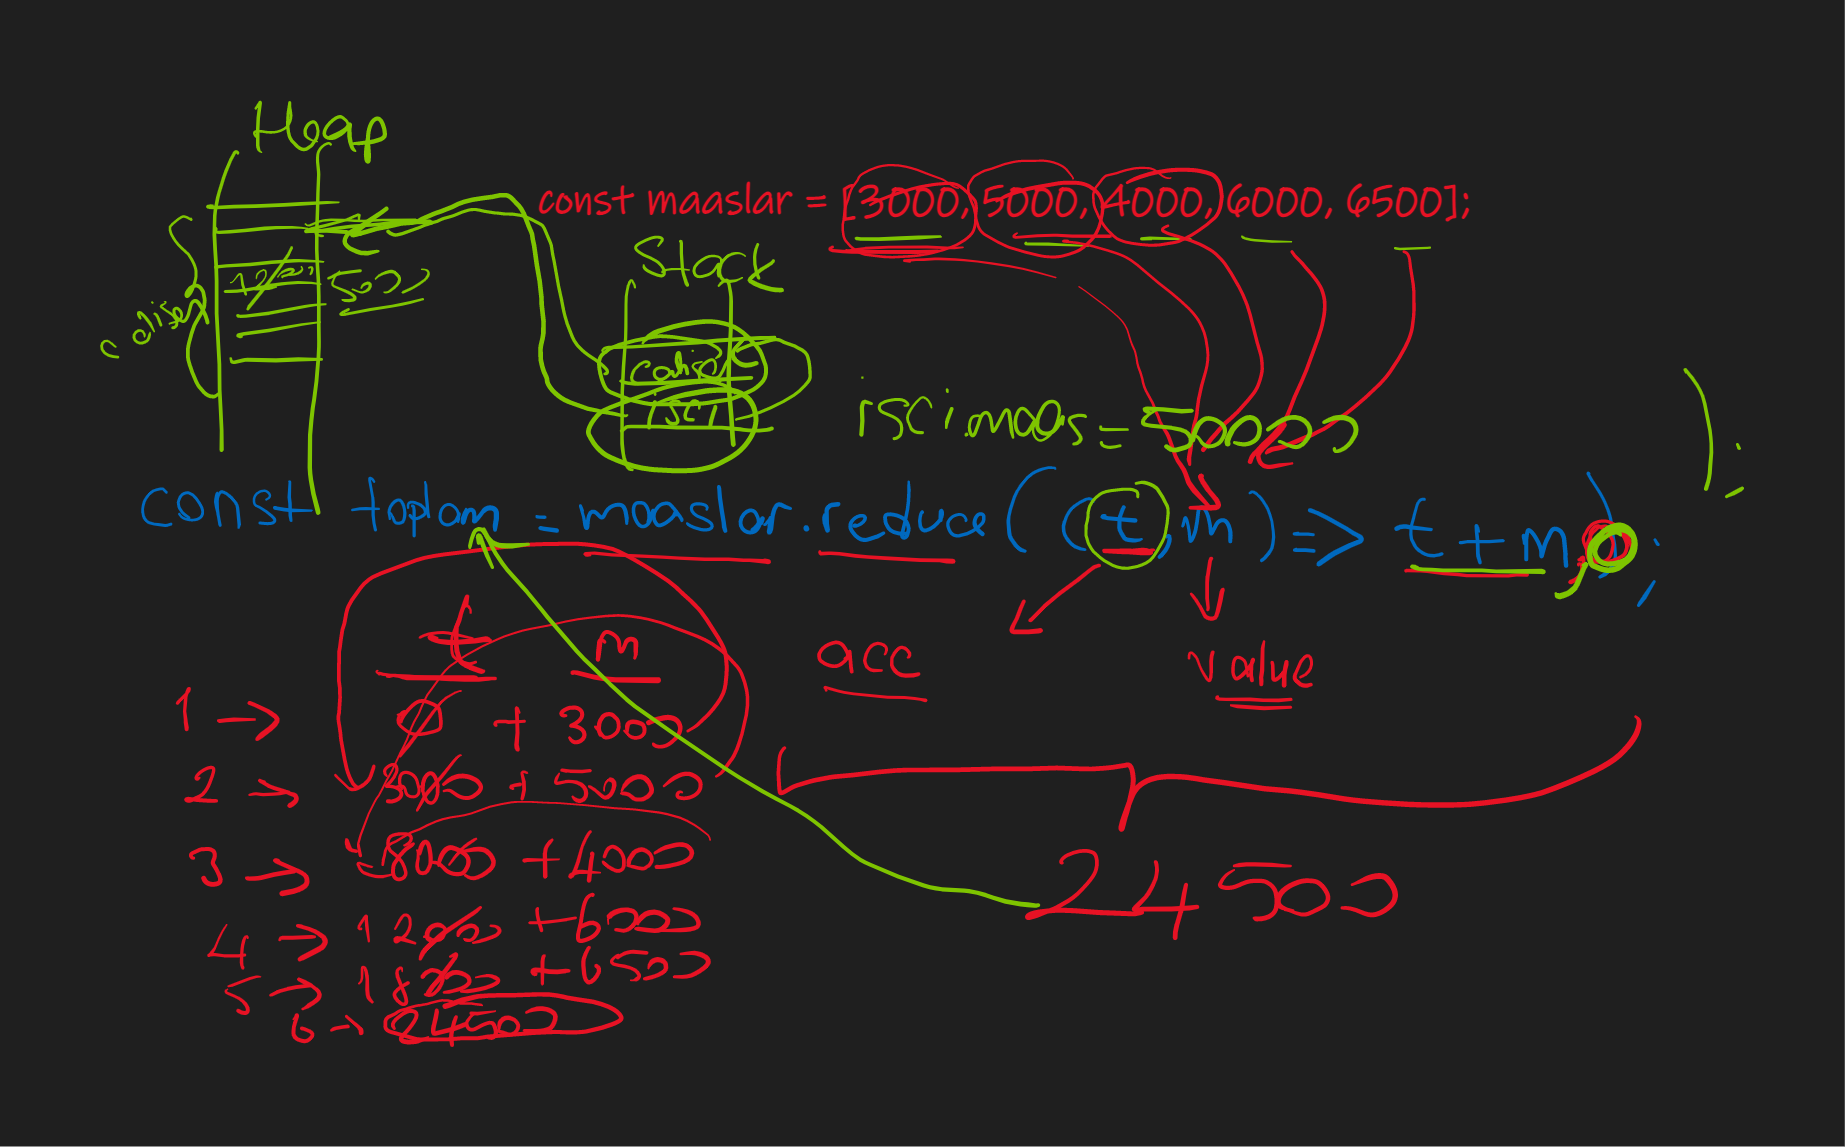 Heap
const maaslar = [3000, 5000, 4000, 6000, 6500];
Stack
500
calisan
isci
isci.maas = 50000
);
const toplam = maaslar.reduce((t,m) => t+m,0);
t m
acc
value
1 -> 0 + 3000
2 -> 3000 + 5000
3 -> 8000 + 4000
4 -> 12000 + 6000
24500
5 -> 18000 + 6500
6 -> 24500